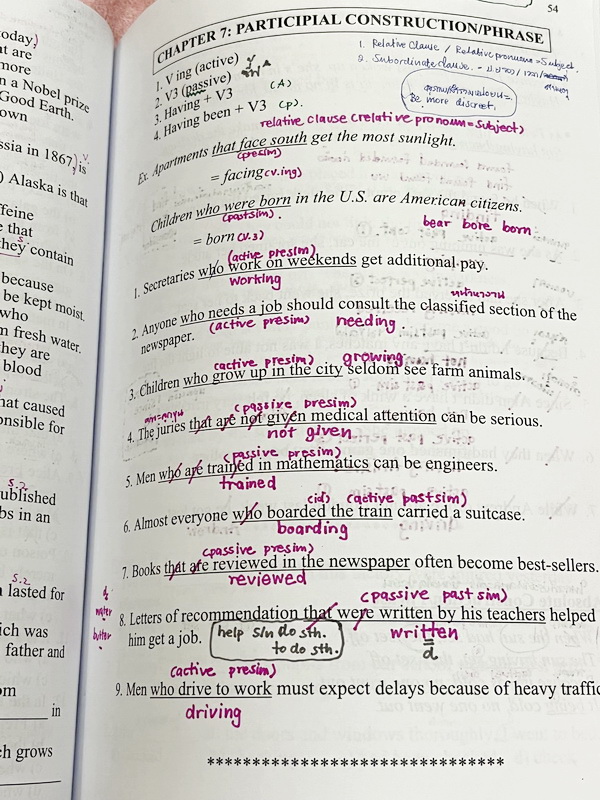 54
CHAPTER 7: PARTICIPIAL CONSTRUCTION/PHRASE
1. V ing (active)
2. V3 (passive)
3. Having + V3 (A)
4. Having been + V3 (P).
1. Relative Clause / Relative pronoun = Subject.
2. Subordinate clause.
Be more discreet.
relative clause (relative pronoun = subject)
Ex. Apartments that face south get the most sunlight.
(presim)
= facing (v.ing)
Children who were born in the U.S. are American citizens.
(pastsim).
= born (v.3)
bear bore born
(active presim)
1. Secretaries who work on weekends get additional pay.
working
2. Anyone who needs a job should consult the classified section of the
newspaper.
(active presim) needing.
(active presim) growing
3. Children who grow up in the city seldom see farm animals.
(passive presim)
4. The juries that are not given medical attention can be serious.
not given
(passive presim)
5. Men who are trained in mathematics can be engineers.
trained
(active pastsim)
6. Almost everyone who boarded the train carried a suitcase.
boarding
(passive presim)
7. Books that are reviewed in the newspaper often become best-sellers.
reviewed
(passive past sim)
8. Letters of recommendation that were written by his teachers helped
him get a job.
help s/n do sth.
to do sth.
written
(active presim)
9. Men who drive to work must expect delays because of heavy traffic
driving
******************************
today)
at are
more
n a Nobel prize
Good Earth.
own
ssia in 1867, is
) Alaska is that
ffeine
e that
they contain
because
be kept moist.
who
m fresh water.
they are
blood
hat caused
onsible for
s.2
ublished
bs in an
s.2
n lasted for
water
butter
ich was
father and
om
in
ch grows